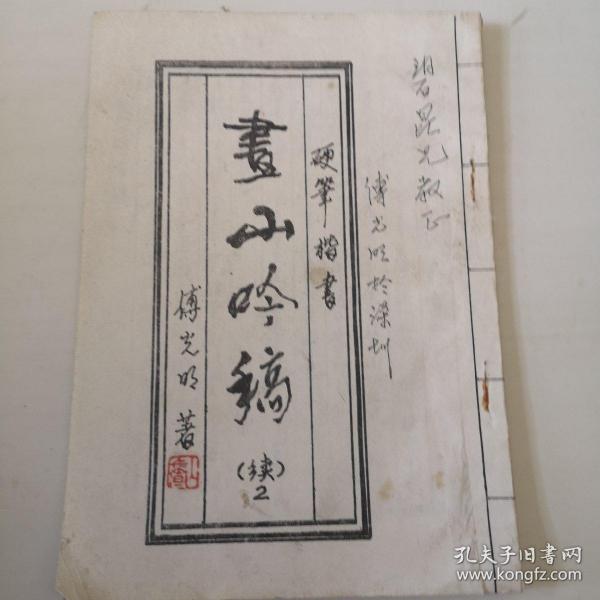 碧昆兄教正
傅光明於深圳
硬筆楷書
畫山吟稿
(续)
2
傅光明著
孔夫子旧书网
www.kongfz.com